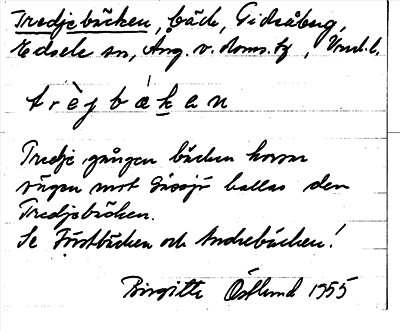 Tredjebäcken, bäck, Gideåberg,
Edsele sn, Ång. v. doms. tg, Vnd. l.
trèjbákan
Tredje gången bäcken korsar
vägen mot Gässjö kallas den
Tredjebäcken.
Se Förstbäcken och Andrebäcken!
Birgitta Östlund 1955